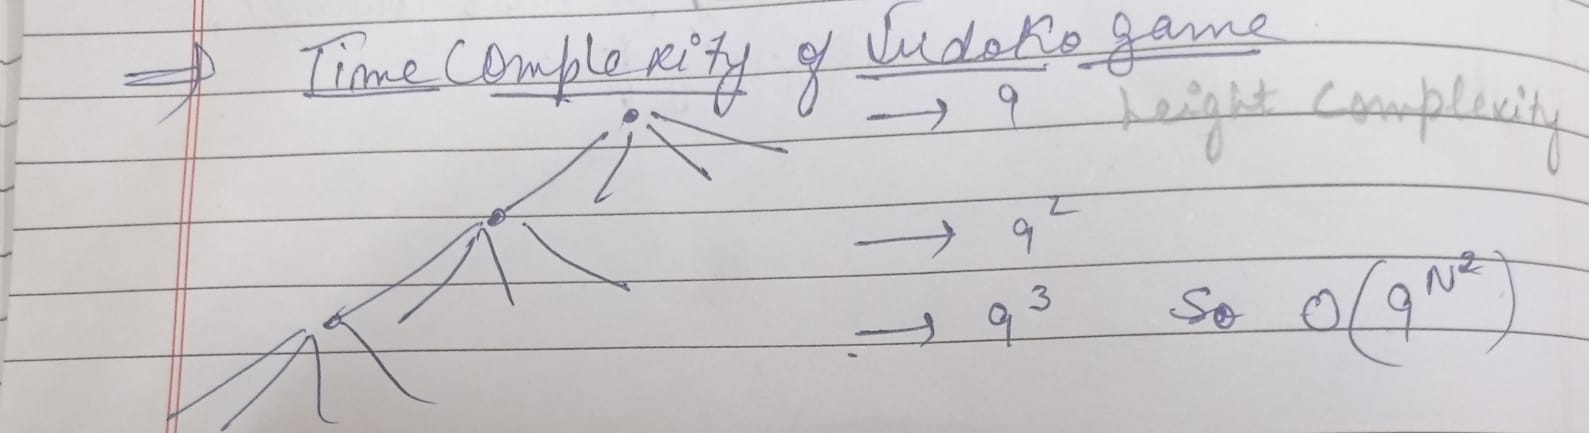 ⇒ Time Complexity of Sudoko game
→ 9 height Complexity
→ 9²
→ 9³ So O(9^N²)